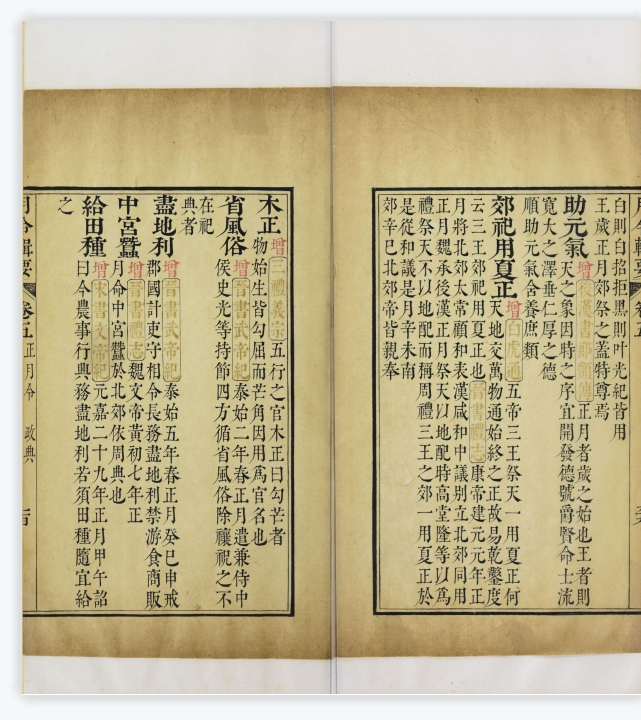 白則白招拒黑則叶光紀皆用
王歲正月郊祭之蓋特尊焉
助元氣 增 後漢書郎顗傳 正月者歲之始也王者則
天之象因時之序宜開發德號爵賢命士流
寬大之澤垂仁厚之德
順助元氣含養庶類
郊祀用夏正 增 白虎通 五帝三王祭天一用夏正何
天地交萬物通始終之正故易乾鑿度
云三王郊祀用夏正也 晉書禮志 康帝建元元年正
月將北郊太常顧和表漢咸和中議別立北郊同用
正月魏承後漢正月祭天以地配時高堂隆等以爲
禮祭天不以地配而稱周禮三王之郊一用夏正於
是從和議是月辛未南
郊辛巳北郊帝皆親奉
木正 增 三禮義宗 五行之官木正曰勾芒者
物始生皆勾屈而芒角因用爲官名也
省風俗 增 晉書武帝紀 泰始二年春正月遣兼侍中
侯史光等持節四方循省風俗除禳祝之不
在祀
典者
盡地利 增 晉書武帝紀 泰始五年春正月癸巳申戒
郡國計吏守相令長務盡地利禁游食商販
中宮蠶 增 晉書禮志 魏文帝黃初七年正
月命中宮蠶於北郊依周典也
給田種 增 宋書文帝紀 元嘉二十九年正月甲午詔
曰今農事行興務盡地利若須田種隨宜給
之
月令輯要 卷五 正月令 政典